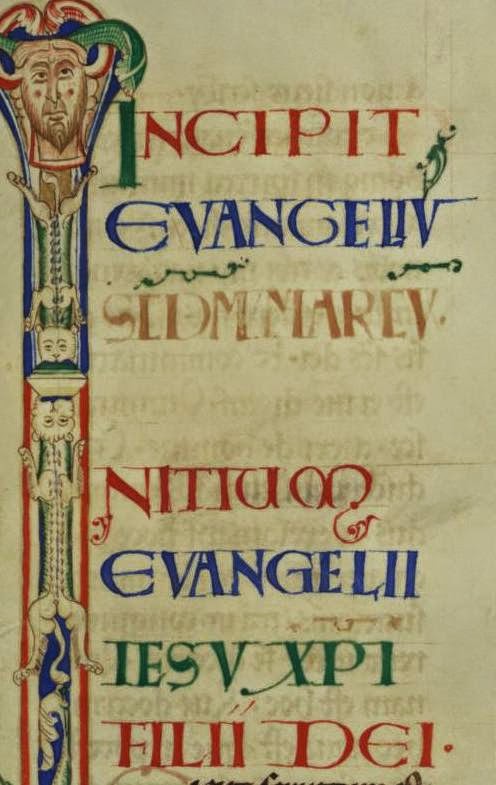 INCIPIT
EVANGELIV
SEDM MARCV.
NITIUM
EVANGELII
IESV XPI
FILII DEI.